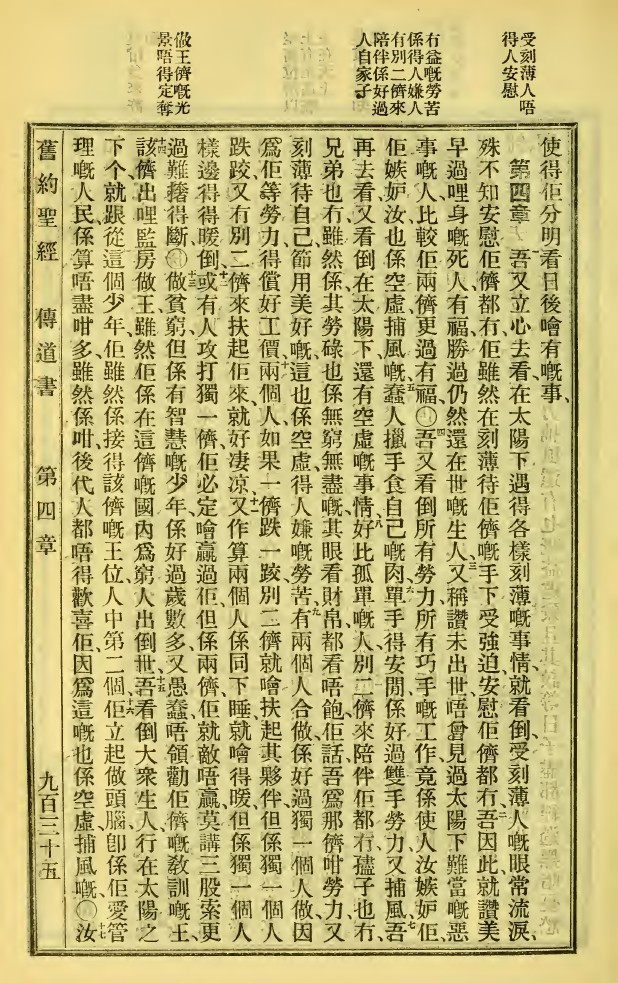 受刻薄人唔
得人安慰
冇益嘅勞苦
係得人嫌人
冇別二儕來
陪伴係好過
人自家子
做王儕嘅光
景唔得定奪
使得佢分明看日後噲有嘅事、
第四章 吾又立心去看在太陽下遇得各樣刻薄嘅事情、就看倒受刻薄人嘅眼常流淚、
殊不知安慰佢儕都冇、佢雖然在刻薄待佢儕嘅手下受強迫、安慰佢儕都冇、二吾因此就讚美
早過哩身嘅死人有福勝過仍然還在世嘅生人、三又稱讚未出世唔曾見過太陽下難當嘅惡
事嘅人、比較佢兩儕更過有福、〇四吾又看倒所有勞力所有巧手嘅工作、竟係使人汝嫉妒佢、
佢嫉妒汝、也係空虛捕風嘅、五蠢人擸手食自己嘅肉、六單手得安閒係好過雙手勞力又捕風、七吾
再去看又看倒在太陽下還有空虛嘅事情、八好比孤單嘅人、別二儕來陪伴佢都冇、孻子也冇、
兄弟也冇、雖然係、其勞碌也係無窮無盡嘅、其眼看財帛都看唔飽、佢話吾爲那儕咁勞力、又
刻薄待自己節用美好嘅、這也係空虛得人嫌嘅勞苦、九有兩個人合做係好過獨一個人做、因
爲佢等勞力得償好工價、十兩個人如果一儕跌一跤、別二儕就噲扶起其夥伴、但係獨一個人
跌跤又冇別二儕來扶起佢來、就好凄凉、十一又作算兩個人係同下睡就噲得暖、但係獨一個人
樣邊得得暖倒、十二或有人攻打獨一儕、佢必定噲贏過佢、但係兩儕佢就敵唔贏、莫講三股索更
過難搼得斷、〇十三做貧窮但係有智慧嘅少年、係好過歲數多又愚蠢唔領勸佢儕嘅敎訓嘅王、
十四該儕出哩監房做王、雖然佢係在這儕嘅國內爲窮人出倒世、十五吾看倒大衆生人行在太陽之
下、个就跟從這個少年、佢雖然係接得該儕嘅王位人中第二個、十六佢立起做頭腦、卽係佢愛管
理嘅人民、係算唔盡咁多、雖然係咁、後代人都唔得歡喜佢、因爲這嘅也係空虛捕風嘅、〇十七汝
舊約聖經 傳道書 第四章 九百三十五